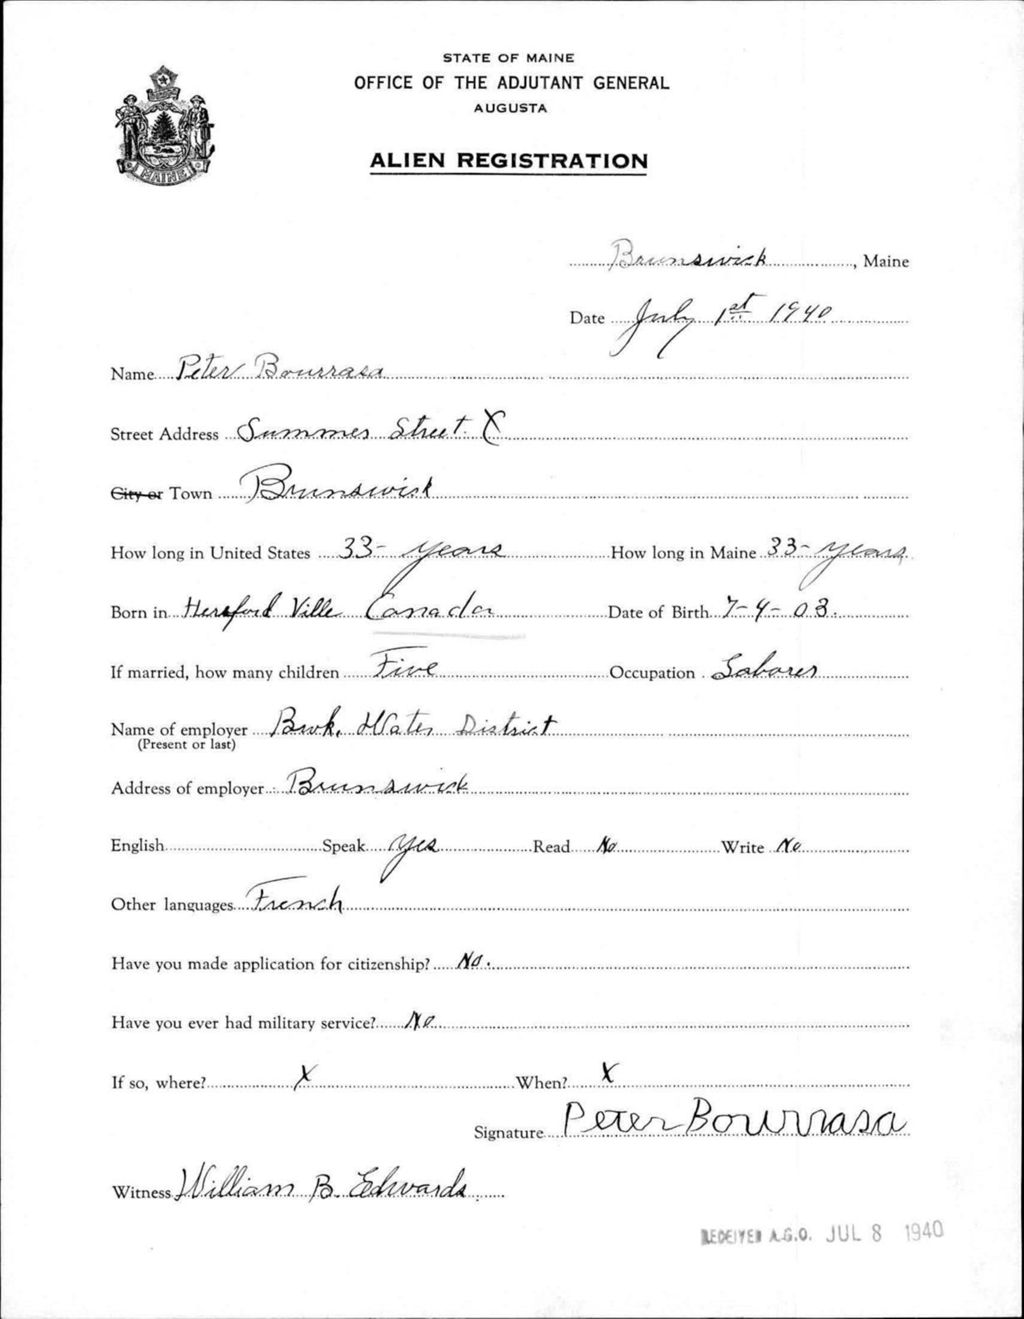 STATE OF MAINE
OFFICE OF THE ADJUTANT GENERAL
AUGUSTA
ALIEN REGISTRATION
MAINE
Brunswick, Maine
Date July 1st 1940
Name Peter Bourrasa
Street Address Summer Street X
City or Town Brunswick
How long in United States 33- years How long in Maine 33- years
Born in Hereford Ville Canada Date of Birth 7-4-03.
If married, how many children Five Occupation Laborer
Name of employer Bwk. Water District
(Present or last)
Address of employer Brunswick
English Speak Yes Read No Write No
Other languages French
Have you made application for citizenship? No.
Have you ever had military service? No
If so, where? X When? X
Signature Peter Bourrasa
Witness William B. Edwards
RECEIVED A.G.O. JUL 8 1940